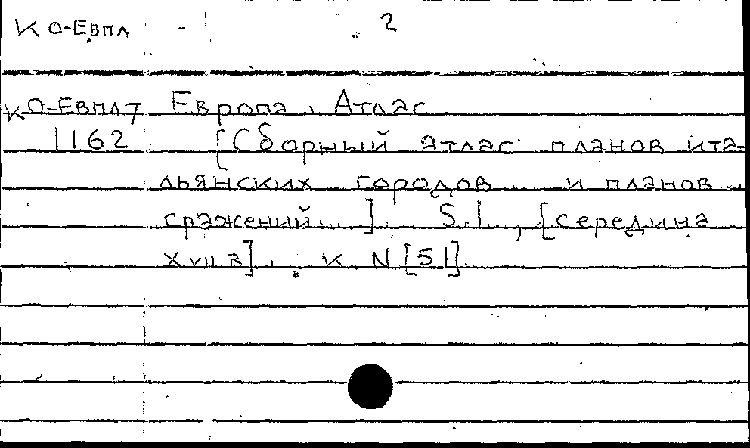 К О-Евпл - 2
К О-Евпл 7 Европа. Атлас
1162 [Сборный атлас планов ита-
льянских городов и планов
сражений...]. S.l., [середина
XVII в]. к. N [51]